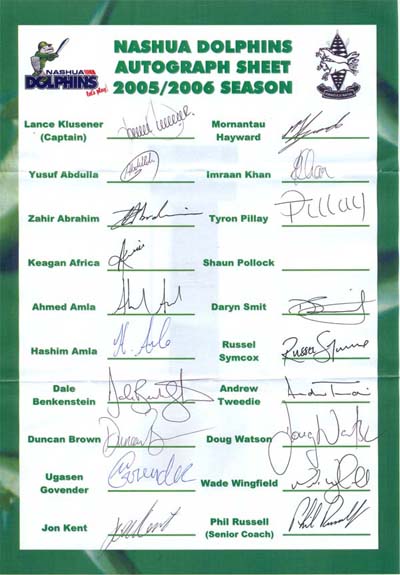 NASHUA DOLPHINS
AUTOGRAPH SHEET
2005/2006 SEASON
NASHUA
DOLPHINS
let's play!
Lance Klusener
(Captain)
Mornantau
Hayward
Yusuf Abdulla
Abdulla
Imraan Khan
Khan
Zahir Abrahim
Abrahim
Tyron Pillay
Pillay
Keagan Africa
Shaun Pollock
Ahmed Amla
Daryn Smit
Hashim Amla
H. Amla
Russel
Symcox
Russel Symcox
Dale
Benkenstein
Andrew
Tweedie
Duncan Brown
Duncan
Doug Watson
Doug Watson
Ugasen
Govender
Govender
Wade Wingfield
Jon Kent
Phil Russell
(Senior Coach)
Phil Russell